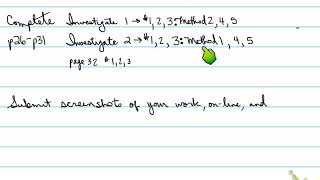 Complete Investigate 1 → #1, 2, 3: Method 2, 4, 5
p26-p31 Investigate 2 → #1, 2, 3: Method 1, 4, 5
page 32 #1, 2, 3
Submit screenshots of your work, on-line, and